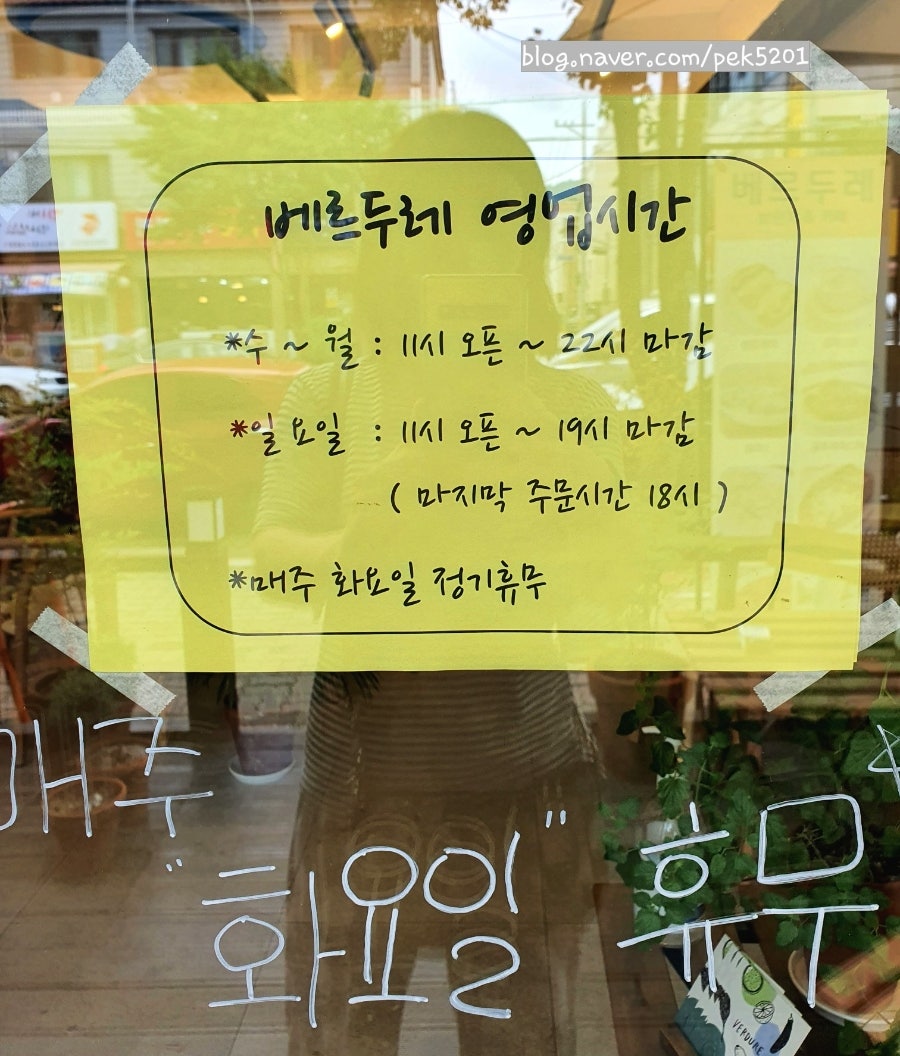 blog.naver.com/pek5201
베르두레 영업시간
*수 ~ 월 : 11시 오픈 ~ 22시 마감
*일요일 : 11시 오픈 ~ 19시 마감
( 마지막 주문시간 18시 )
*매주 화요일 정기휴무
매주
"화요일" 휴무
VERDURE
베르두레